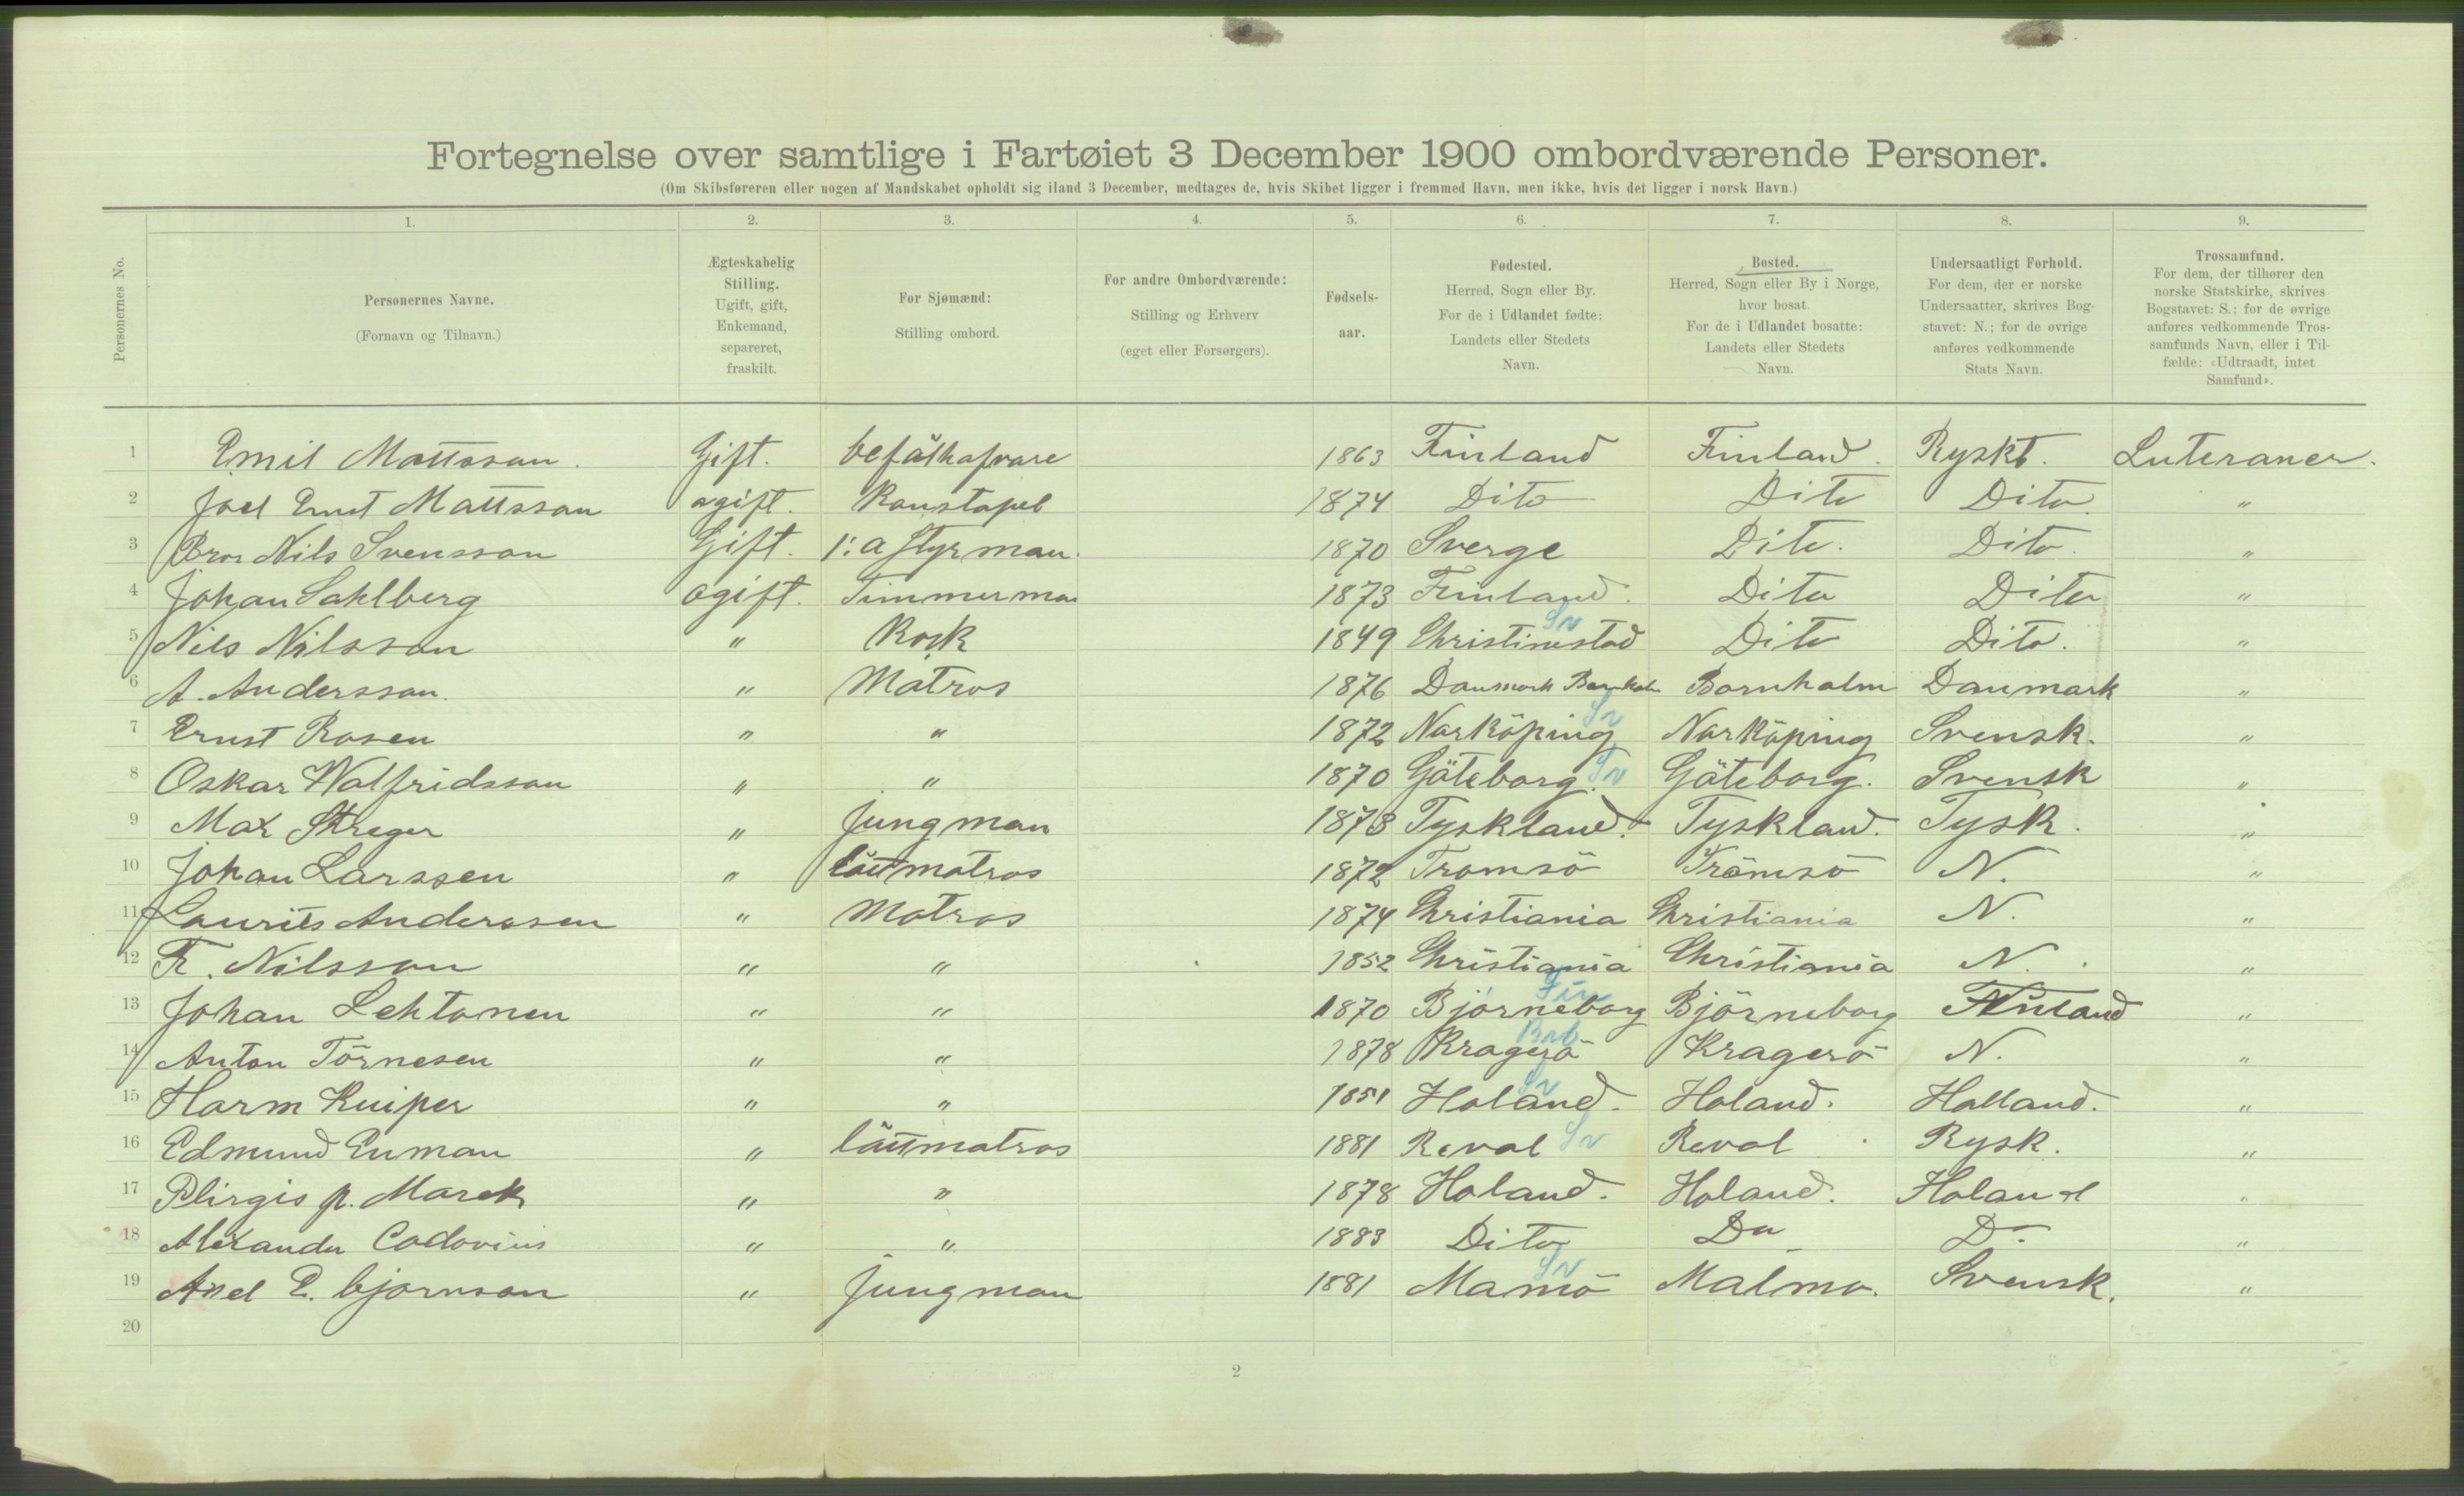 Fortegnelse over samtlige i Fartøiet 3 December 1900 ombordværende Personer.
(Om Skibsføreren eller nogen af Mandskabet opholdt sig iland 3 December, medtages de, hvis Skibet ligger i fremmed Havn, men ikke, hvis det ligger i norsk Havn.)
1. 2. 3. 4. 5. 6. 7. 8. 9.
Personernes No.
Personernes Navne.
(Fornavn og Tilnavn.)
Ægteskabelig
Stilling.
Ugift, gift,
Enkemand,
separeret,
fraskilt.
For Sjømænd:
Stilling ombord.
For andre Ombordværende:
Stilling og Erhverv
(eget eller Forsørgers).
Fødsels-
aar.
Fødested.
Herred, Sogn eller By.
For de i Udlandet fødte:
Landets eller Stedets
Navn.
Bosted.
Herred, Sogn eller By i Norge,
hvor bosat.
For de i Udlandet bosatte:
Landets eller Stedets
Navn.
Undersaatligt Forhold.
For dem, der er norske
Undersaatter, skrives Bog-
stavet: N.; for de øvrige
anføres vedkommende
Stats Navn.
Trossamfund.
For dem, der tilhører den
norske Statskirke, skrives
Bogstavet: S.; for de øvrige
anføres vedkommende Tros-
samfunds Navn, eller i Til-
fælde: «Udtraadt, intet
Samfund».
1 Emil Mattsson. Gift. befälhafvare 1863 Finland Finland. Ryskt. Luteraner.
2 Joel Ernst Mattsson ogift. Konstapel 1874 Dito Dito Dito. "
3 Bror Nils Svensson Gift. 1:a Styrman. 1870 Sverge Dito. Dito. "
4 Johan Sahlberg ogift. Timmerman 1873 Finland. Dito Dito "
5 Nils Nilsson " Kock 1849 Christinestad Dito Dito. "
6 A. Andersson. " Matros 1876 Danmark Bornholm Bornholm Danmark "
7 Ernst Rosen " " 1872 Norköping Norköping Svensk. "
8 Oskar Walfridsson " " 1870 Göteborg. Göteborg. Svensk "
9 Max Streger " Jungman 1878 Tyskland. Tyskland. Tysk. "
10 Johan Larssen " lättmatros 1872 Tromsö Tromsö N. "
11 Laurits Anderssen " Matros 1874 Christiania Christiania N. "
12 F. Nilsson " " 1852 Christiania Christiania N. "
13 Johan Lehtonen " " 1870 Björneborg Björneborg Finland "
14 Anton Törnesen " " 1878 Kragerö Kragerö N. "
15 Harm Kuiper " " 1851 Holand. Holand. Holland. "
16 Edmund Enman " lättmatros 1881 Reval Reval Rysk. "
17 Plirgis p. Marek " " 1878 Holand. Holand. Holand "
18 Alexander Codovius " " 1883 Dito Do Do "
19 Axel E. bjornson " Jungman 1881 Mamö Malmo. Svensk. "
20
2